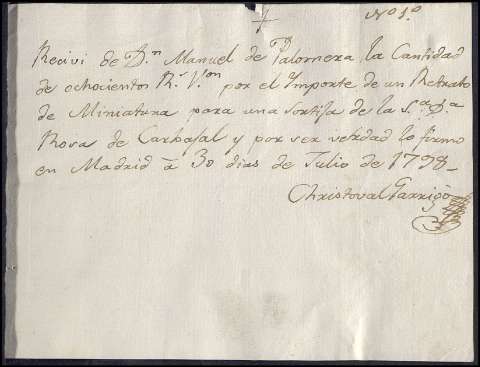 Nº 5º
Recivi de D.n Manuel de Palomera la Cantidad
de ochocientos R.s V.on por el Importe de un Retrato
de Miniatura para una sortija de la S.ra D.a
Rosa de Carbajal y por ser verdad lo firmo
en Madrid à 30 dias de Julio de 1798_
Christoval Garrigò